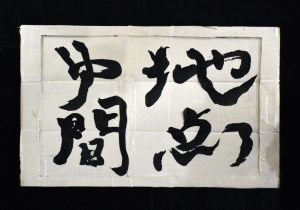 中間
地点